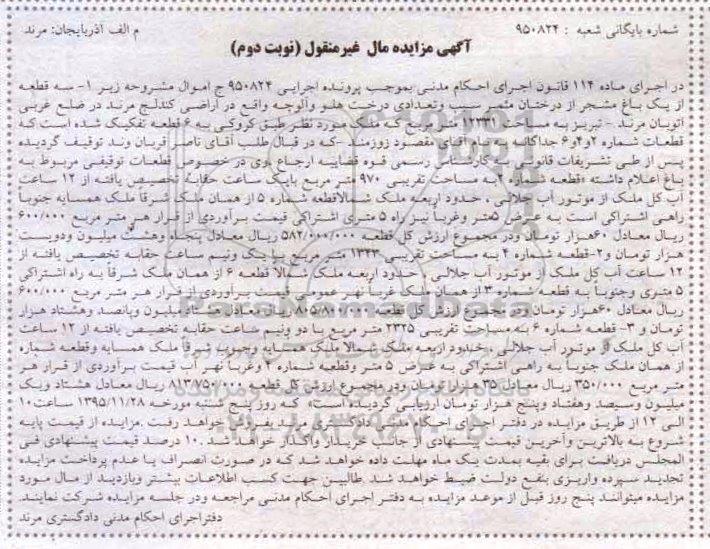 شماره بایگانی شعبه : ۹۵۰۸۲۴
م الف آذربایجان: مرند
آگهی مزایده مال غیرمنقول (نوبت دوم)
در اجرای ماده ۱۱۴ قانون اجرای احکام مدنی بموجب پرونده اجرایی ۹۵۰۸۲۴ ج اموال مشروحه زیر ۱- سه قطعه
از یک باغ مشجر از درختان مثمر سیب وتعدادی درخت هلو وآلوچه واقع در اراضی کندلج مرند در ضلع غربی
اتوبان مرند - تبریز به مساحت ۱۲۳۳۱ متر مربع که ملک مورد نظر طبق کروکی به ۶ قطعه تفکیک شده است که
قطعات شماره ۲و۴و۶ جداگانه به نام آقای مقصود زوزمند -که در قبال طلب آقای ناصر قربان وند توقیف گردیده
پس از طی تشریفات قانونی و کارشناس رسمی قوه قضاییه ارجاع وی در خصوص قطعات توقیفی مربوط به
باغ اعلام داشته «قطعه شماره ۲ به مساحت تقریبی ۹۷۰ متر مربع بایک ساعت حقابه تخصیص یافته از ۱۲ ساعت
آب کل ملک از موتور آب جلالی ، حدود اربعه ملک شمالاقطعه شماره ۵ از همان ملک شرقاً ملک همسایه جنوباً
راهی اشتراکی است به عرض ۵متر وغرباً نیز راه ۵ متری اشتراکی قیمت برآوردی از قرار هر متر مربع ۶۰۰/۰۰۰
ریال معادل ۶۰هزار تومان ودر مجموع ارزش کل قطعه ۵۸۲/۰۰۰/۰۰۰ ریال معادل پنجاه وهشت میلیون ودویست
هزار تومان و۲-قطعه شماره ۴ به مساحت تقریبی ۱۳۴۳ متر مربع با یک ونیم ساعت حقابه تخصیص یافته از
۱۲ ساعت آب کل ملک از موتور آب جلالی ، حدود اربعه ملک شمالا قطعه ۶ از همان ملک شرقاً به راه اشتراکی
۵ متری وجنوبا به قطعه شماره ۳ از همان ملک غرباً نهر عمومی آب قیمت برآوردی از قرار هر متر مربع ۶۰۰/۰۰۰
ریال معادل ۶۰هزار تومان ودر مجموع ارزش کل قطعه ۸۰۵/۸۰۰/۰۰۰ ریال معادل هشتاد میلیون وپانصد وهشتاد هزار
تومان و ۳- قطعه شماره ۶ به مساحت تقریبی ۲۳۲۵ متر مربع با دو ونیم ساعت حقابه تخصیص یافته از ۱۲ ساعت
آب کل ملک از موتور آب جلالی ، حدود اربعه ملک شمالا ملک همسایه وجنوب شرقاً ملک همسایه وقطعه شماره
از همان ملک جنوباً به راهی اشتراکی به عرض ۵ متر وقطعه شماره ۴ وغرباً نهر آب قیمت برآوردی از قرار هر
متر مربع ۳۵۰/۰۰۰ ریال معادل ۳۵ هزار تومان ودر مجموع ارزش کل قطعه ۸۱۳/۷۵۰/۰۰۰ ریال معادل هشتاد ویک
میلیون وسیصد وهفتاد وپنج هزار تومان ارزیابی گردیده است» که روز پنج شنبه مورخه ۱۳۹۵/۱۱/۲۸ ساعت۱۰
الی ۱۲ از طریق مزایده در دفتر اجرای احکام مدنی دادگستری مرند بفروش خواهد رفت .مزایده از قیمت پایه
شروع به بالاترین وآخرین قیمت پیشنهادی از جانب خریدار واگذار خواهد شد .۱۰ درصد قیمت پیشنهادی فی
المجلس دریافت برای بقیه بمدت یک ماه مهلت داده خواهد شد که در صورت انصراف یا عدم پرداخت مزایده
تجدید سپرده واریزی بنفع دولت ضبط خواهد شد .طالبین جهت کسب اطلاعات بیشتر وبازدید از مال مورد
مزایده میتوانند پنج روز قبل از موعد مزایده به دفتر اجرای احکام مدنی مراجعه ودر جلسه مزایده شرکت نمایند.
دفتراجرای احکام مدنی دادگستری مرند
ParsNamadData